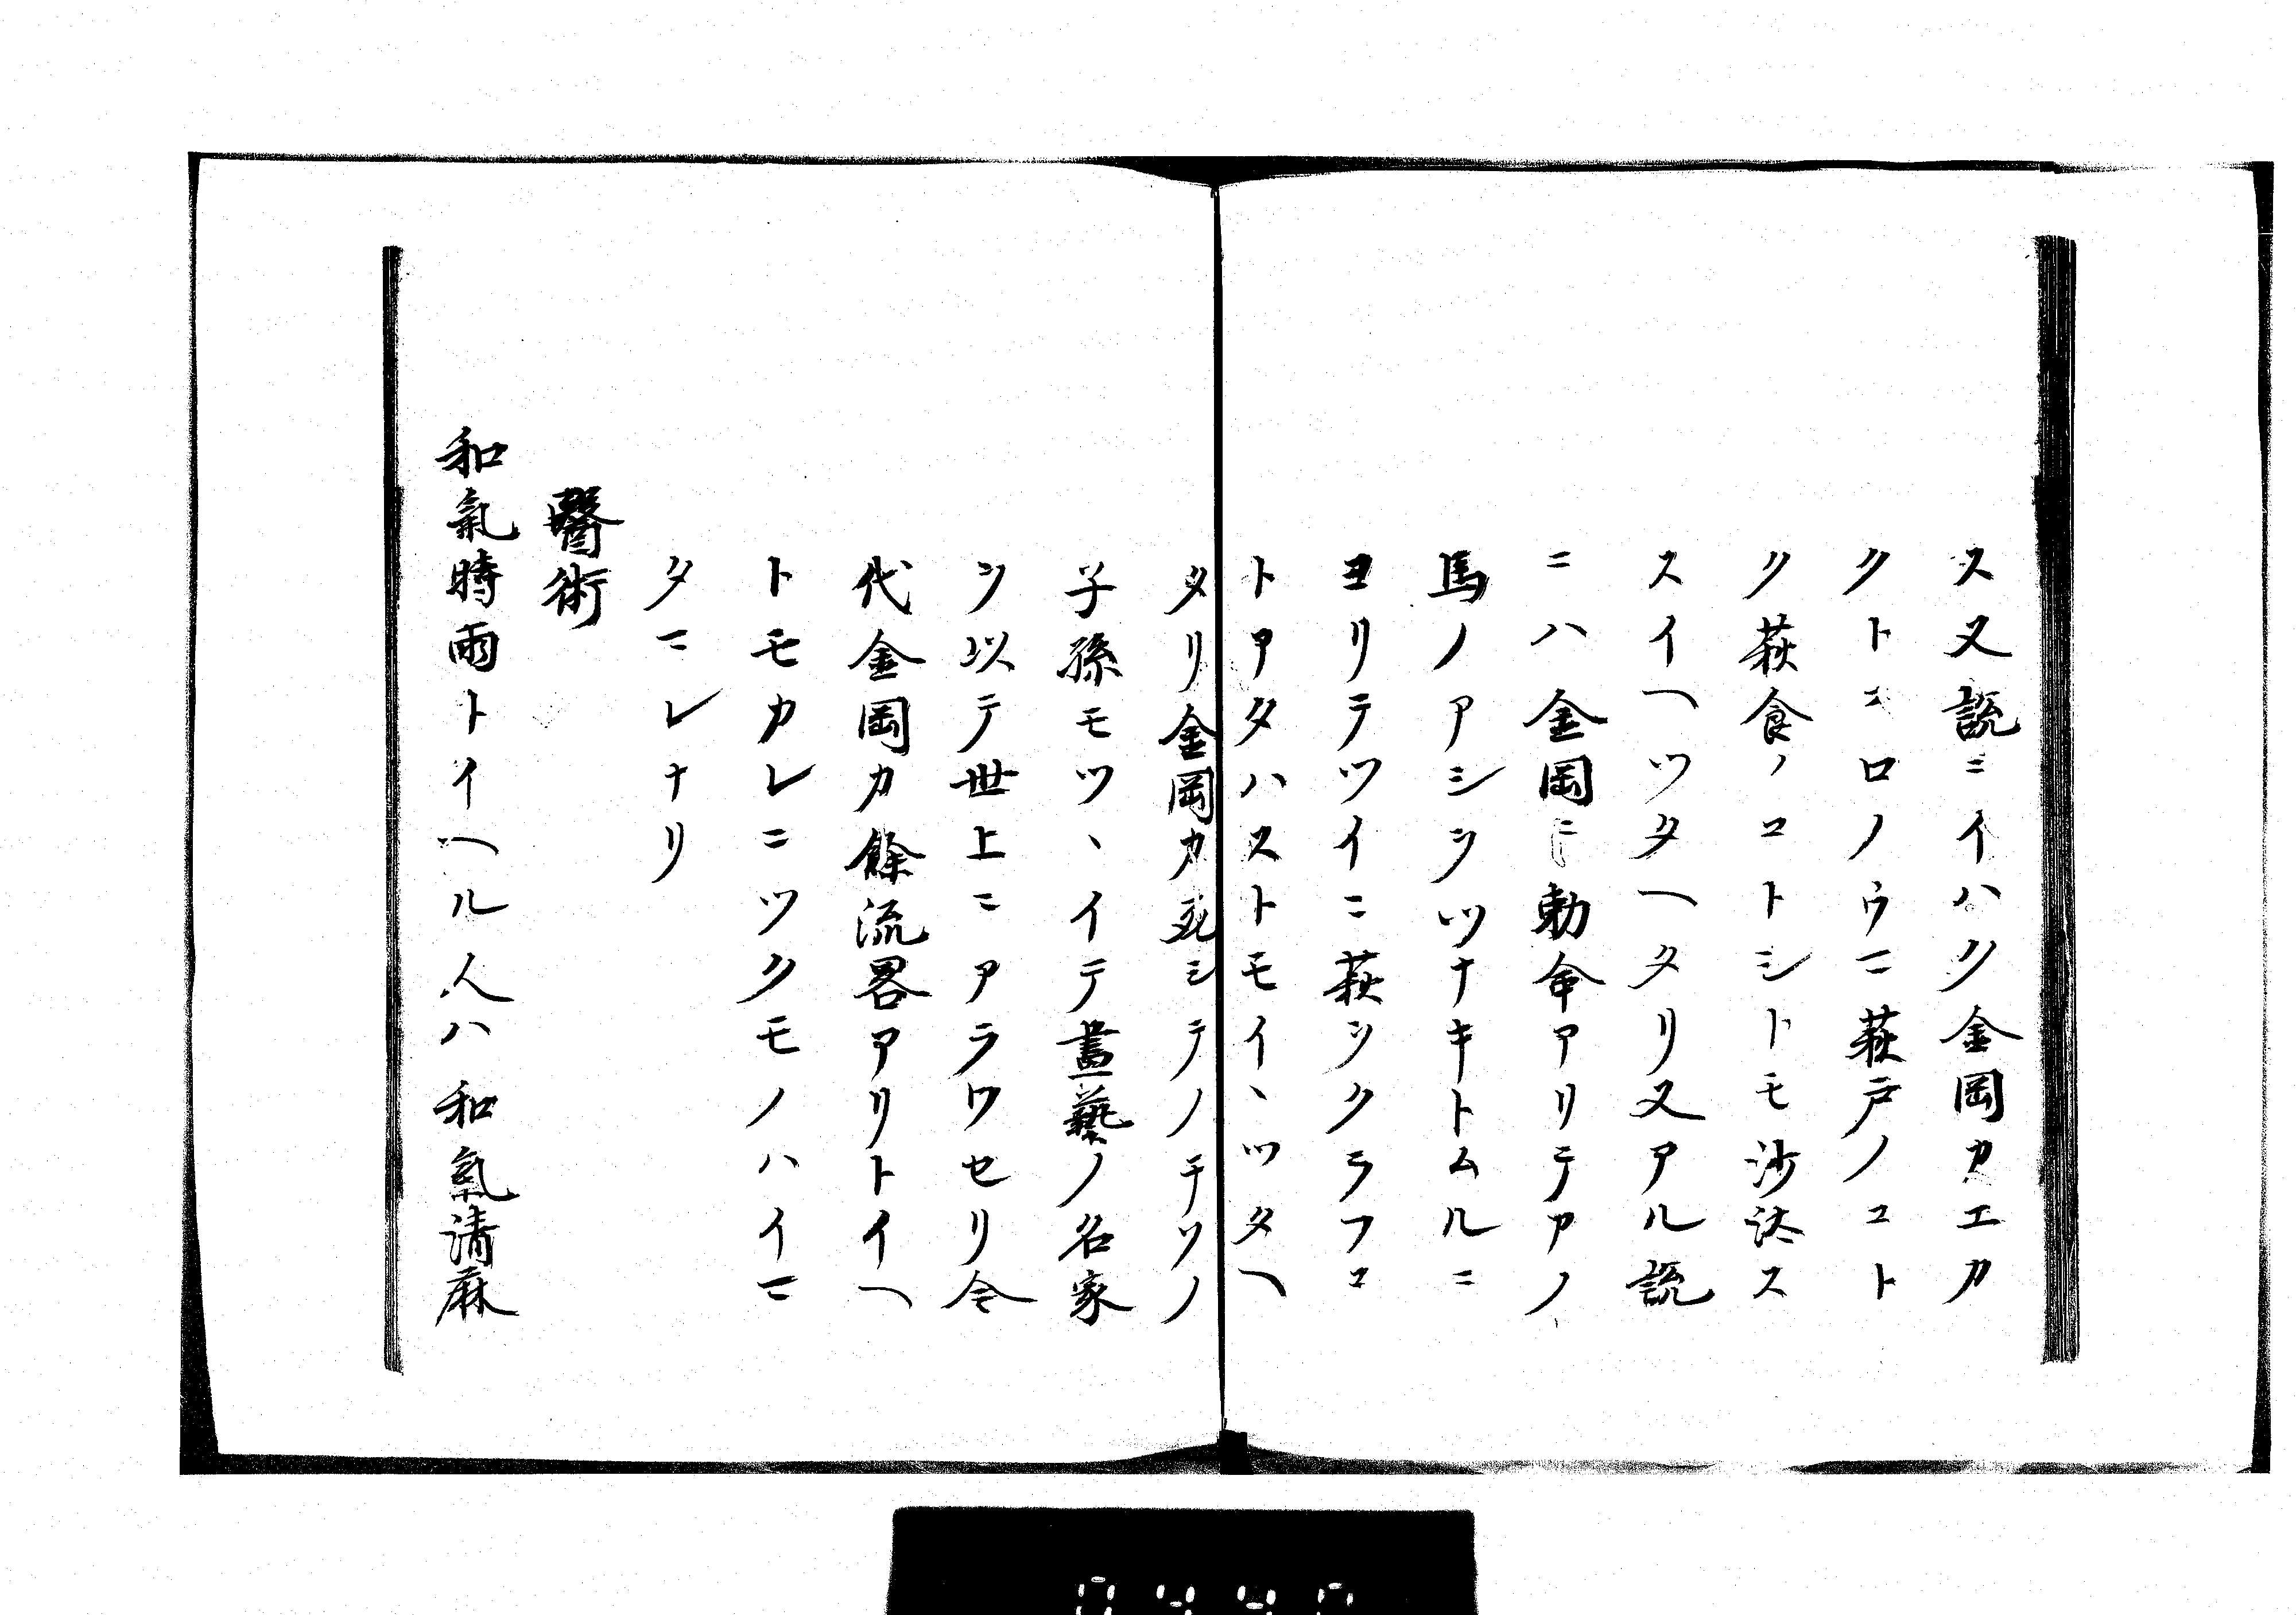 ス又説ニイハク金岡カエカ
クトコロノウマ萩戸ノコト
ク萩食ノコトシトモ沙汰ス
スイヘツタヘタリ又アル説
ニハ金岡ニ勅命アリテアノ
馬ノアシヲツナキトムルニ
ヨリテツイニ萩ヲクラフコ
トアタハストモイヽツタヘ
タリ金岡カ死シテノチソノ
子孫モツヽイテ畫藝ノ名家
ヲ以テ世上ニアラワセリ今
代金岡カ餘流畧アリトイヘ
トモカレニツクモノハイマ
タマレナリ
醫術
和氣時雨トイヘル人ハ和氣清麻